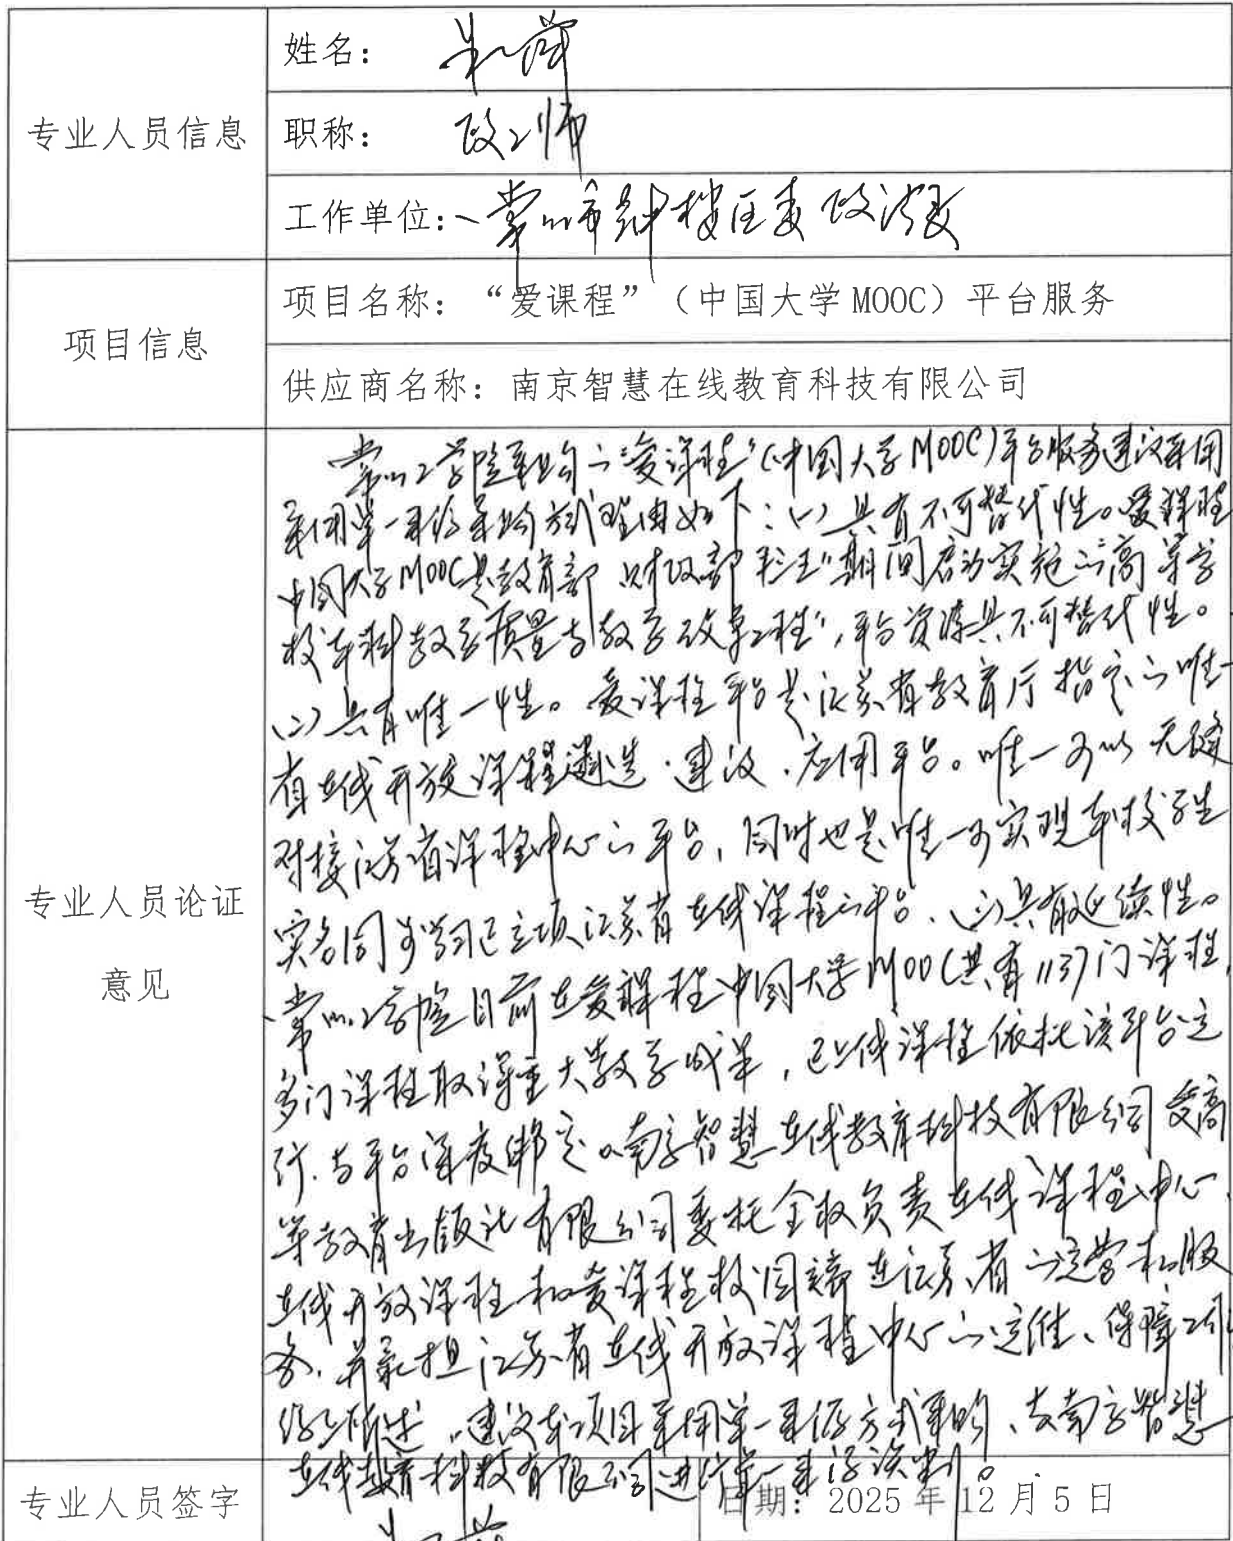 专业人员信息
姓名：
职称：政工师
工作单位：常州市钟楼区委政法委
项目信息
项目名称：“爱课程”（中国大学MOOC）平台服务
供应商名称：南京智慧在线教育科技有限公司
专业人员论证
意见
常州工学院采购的“爱课程”（中国大学MOOC）平台服务建议采用
采用单一来源采购方式理由如下：（一）具有不可替代性。爱课程
中国大学MOOC是教育部 财政部“十二五”期间启动实施的“高等学
校本科教学质量与教学改革工程”，平台资源具不可替代性。
（二）具有唯一性。爱课程平台是江苏省教育厅指定的唯一
省在线开放课程遴选、建设、应用平台。唯一可以无缝
对接江苏省课程中心的平台，同时也是唯一可实现本校学生
实名同步学习已立项江苏省在线课程的平台、（三）具有延续性。
常州工学院目前在爱课程中国大学MOOC共有1137门课程，
多门课程取得重大教学成果，已上线课程依托该平台运
行、与平台深度绑定。南京智慧在线教育科技有限公司受高
等教育出版社有限公司委托全权负责在线课程中心、
在线开放课程和爱课程校园端在江苏省的运营和服
务、并承担江苏省在线开放课程中心的运维、保障工作
综上所述，建议本项目采用单一来源方式采购、去南京智慧
在线教育科技有限公司进行单一来源谈判。
专业人员签字
日期：2025年12月5日